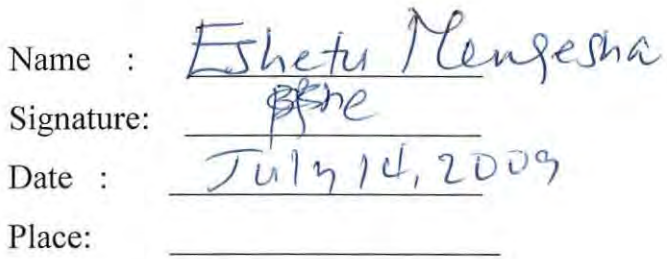 Name : Eshetu Mengesha
Signature:
Date : July 14, 2009
Place: